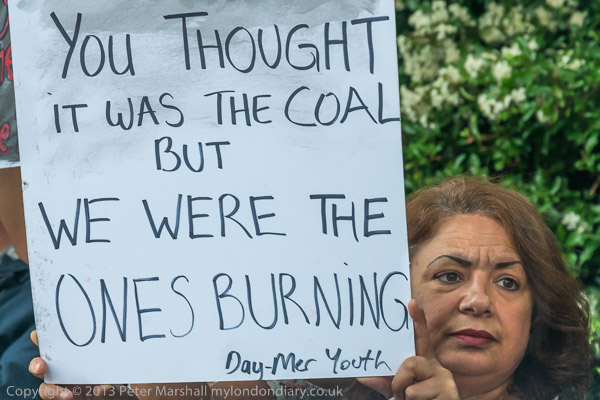 YOU THOUGHT
IT WAS THE COAL
BUT
WE WERE THE
ONES BURNING
Day-Mer Youth
Copyright © 2013 Peter Marshall mylondondiary.co.uk